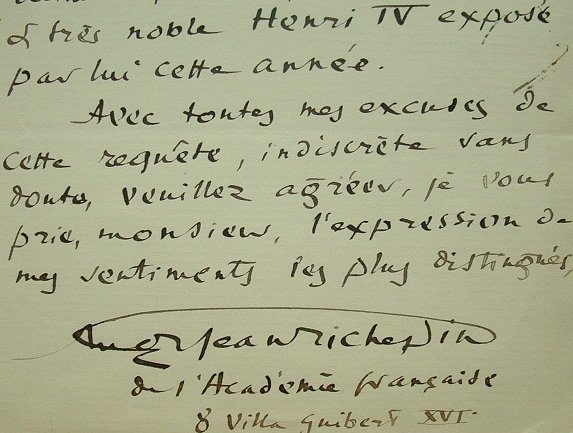 & très noble Henri IV exposé
par lui cette année.
Avec toutes mes excuses de
cette requête, indiscrète sans
doute, veuillez agréer, je vous
prie, monsieur, l'expression de
mes sentiments les plus distingués,
Jean richepin
de l'Académie française
8 Villa Guibert XVI.